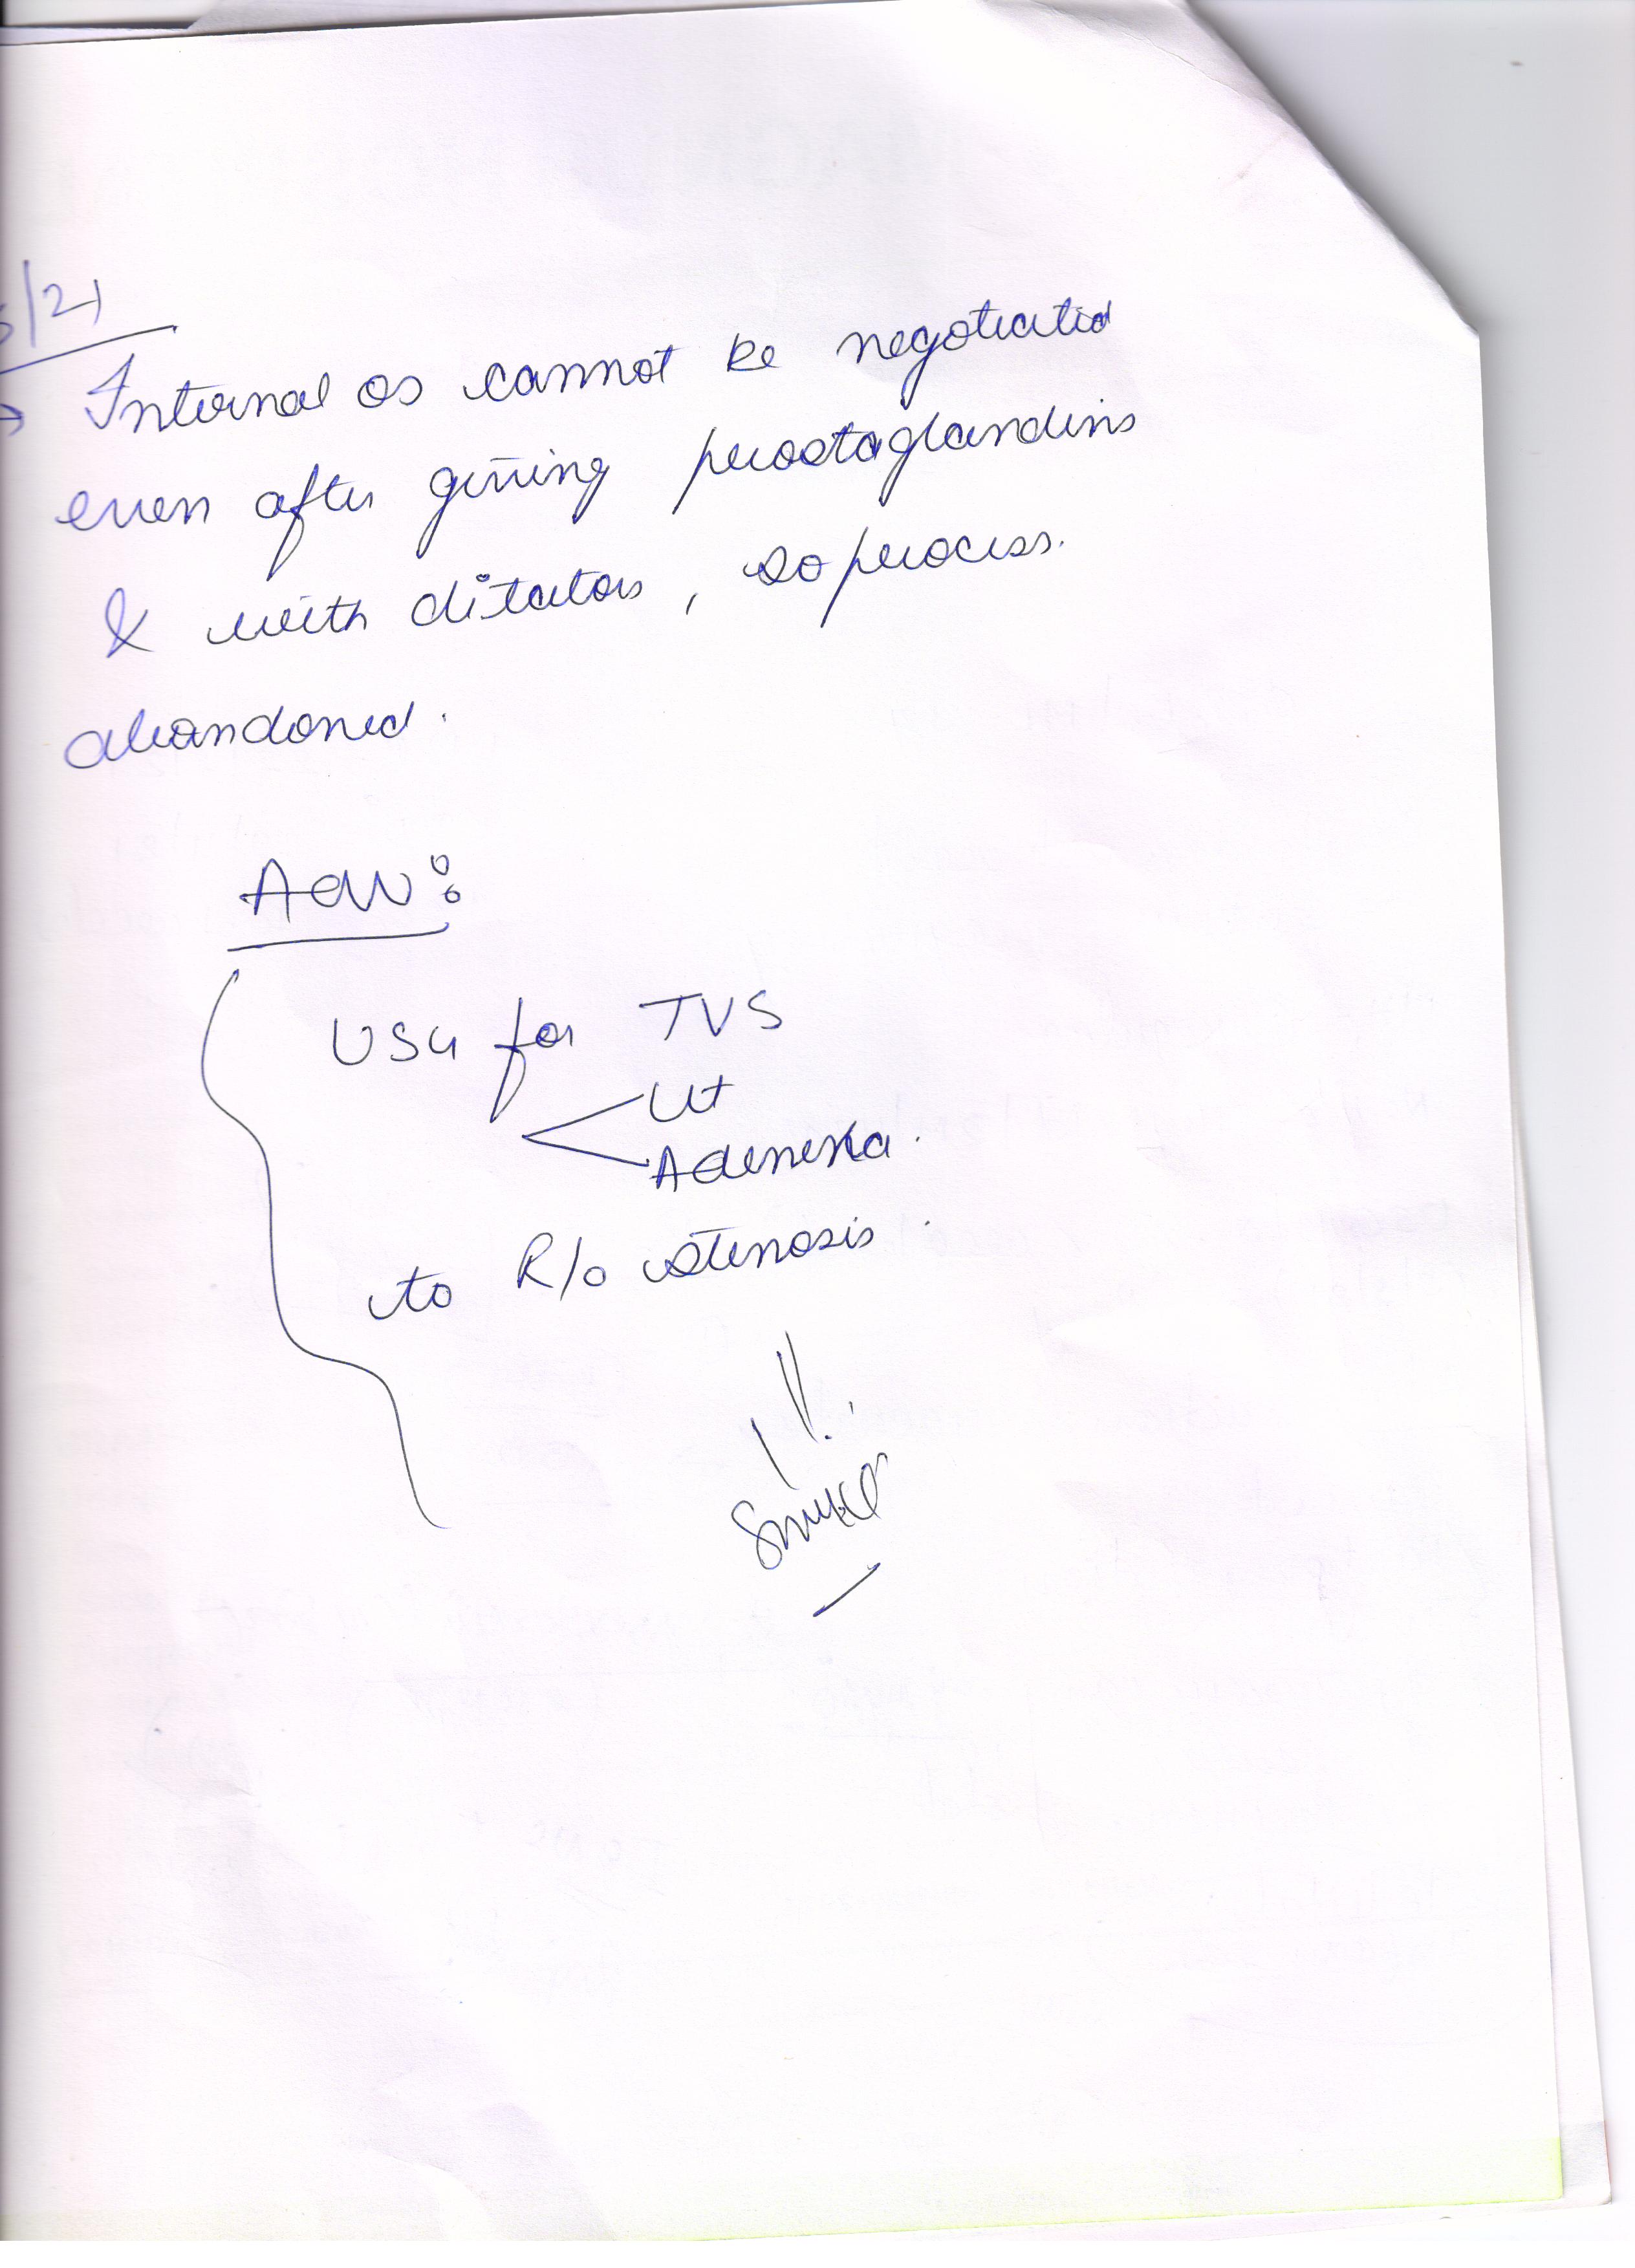 5/21
→ Internal os cannot be negotiated
even after giving prostaglandins
& with dilators, so process.
abandoned.
Adv:
USG for TVS
Ut
Adenexa.
to R/o stenosis.